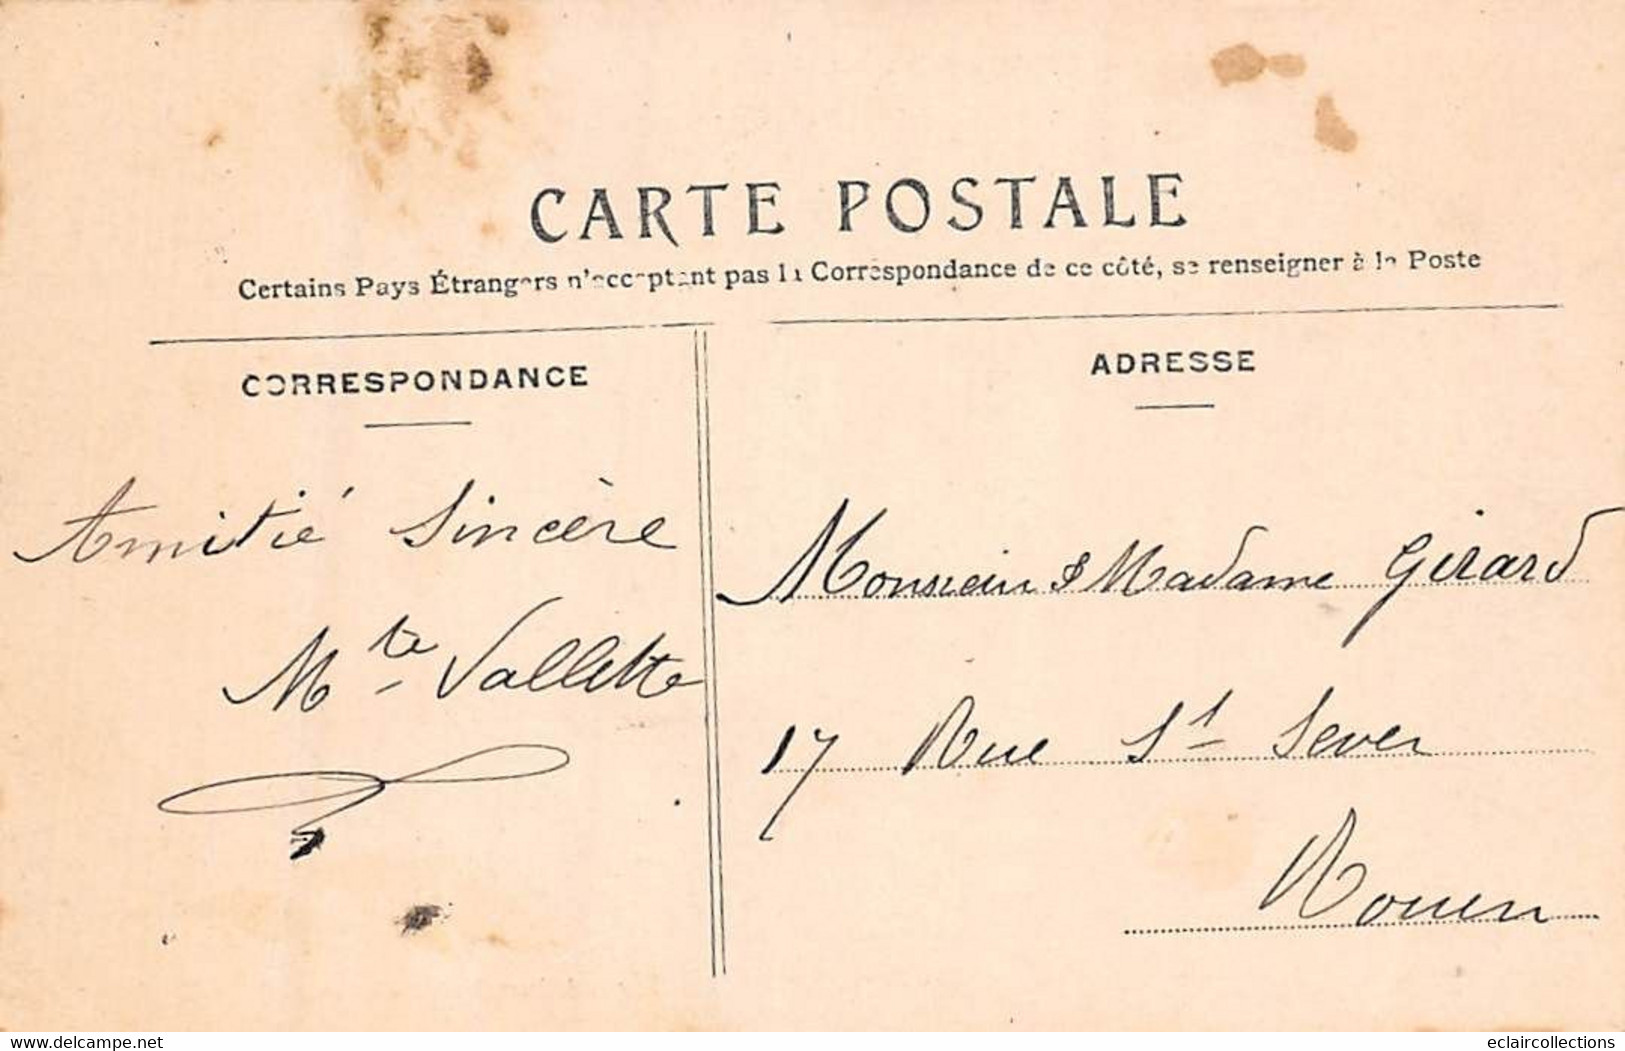 CARTE POSTALE
Certains Pays Étrangers n'acceptant pas la Correspondance de ce côté, se renseigner à la Poste
CORRESPONDANCE
ADRESSE
Amitié Sincère
Mte Vallette
Monsieur & Madame Girard
17 Rue St Sever
Rouen
www.delcampe.net
eclaircollections